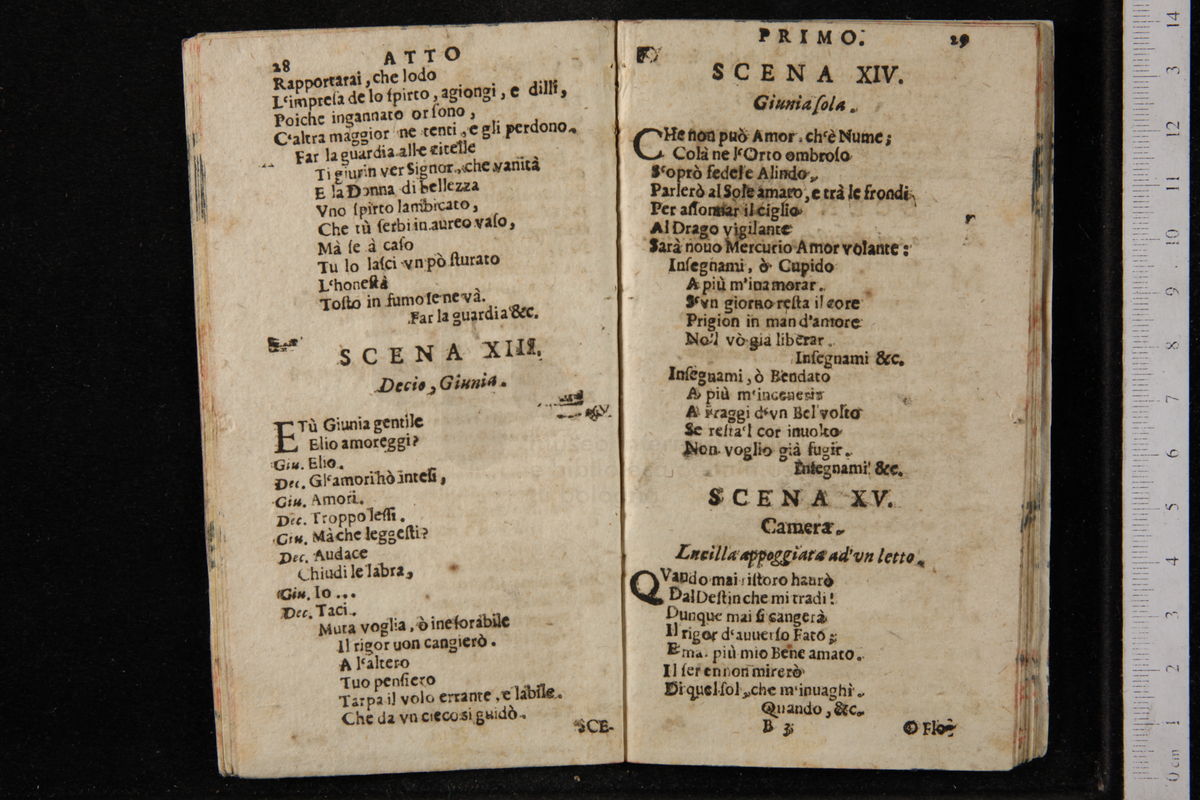 28 ATTO
Rapportarai, che lodo
L'impresa de lo spirto, agiongi, e dilli,
Poiche ingannato or sono,
C'altra maggior ne tenti, e gli perdono.
Far la guardia alle citelle
Ti giurin ver Signor, che vanità
E la Donna di bellezza
Vno spirto lambicato,
Che tù serbi in aureo vaso,
Mà se à caso
Tu lo lasci vn pò sturato
L'honestà
Tosto in fumo se ne và.
Far la guardia &c.
SCENA XIII.
Decio, Giunia.
E Tù Giunia gentile
Elio amoreggi?
Giu. Elio.
Dec. Gl'amori hò intesi,
Giu. Amori.
Dec. Troppo lessi.
Giu. Mà che leggesti?
Dec. Audace
Chiudi le labra,
Giu. Io...
Dec. Taci.
Muta voglia, ò inesorabile
Il rigor uon cangierò.
A l'altero
Tuo pensiero
Tarpa il volo errante, e labile.
Che da vn cieco si guidò.
SCE-
PRIMO. 29
SCENA XIV.
Giunia sola.
CHe non può Amor, ch'è Nume;
Colà ne l'Orto ombroso
S'oprò fedele Alindo,
Parlerò al Sole amato, e trà le frondi
Per assonnar il ciglio
Al Drago vigilante
Sarà nouo Mercurio Amor volante:
Insegnami, ò Cupido
A più m'inamorar.
S'vn giorno resta il core
Prigion in man d'amore
No'l vò gia liberar.
Insegnami &c.
Insegnami, ò Bendato
A più m'incenerir
A i raggi d'vn Bel volto
Se resta'l cor inuolto
Non voglio già fugir.
Insegnami &c.
SCENA XV.
Camera.
Lucilla appoggiata ad'vn letto.
QVando mai ristoro haurò
Dal Destin che mi tradì!
Dunque mai si cangerà
Il rigor d'auuerso Fato;
E mai più mio Bene amato.
Il seren non mirerò
Di quel sol, che m'inuaghì.
Quando, &c.
B 3